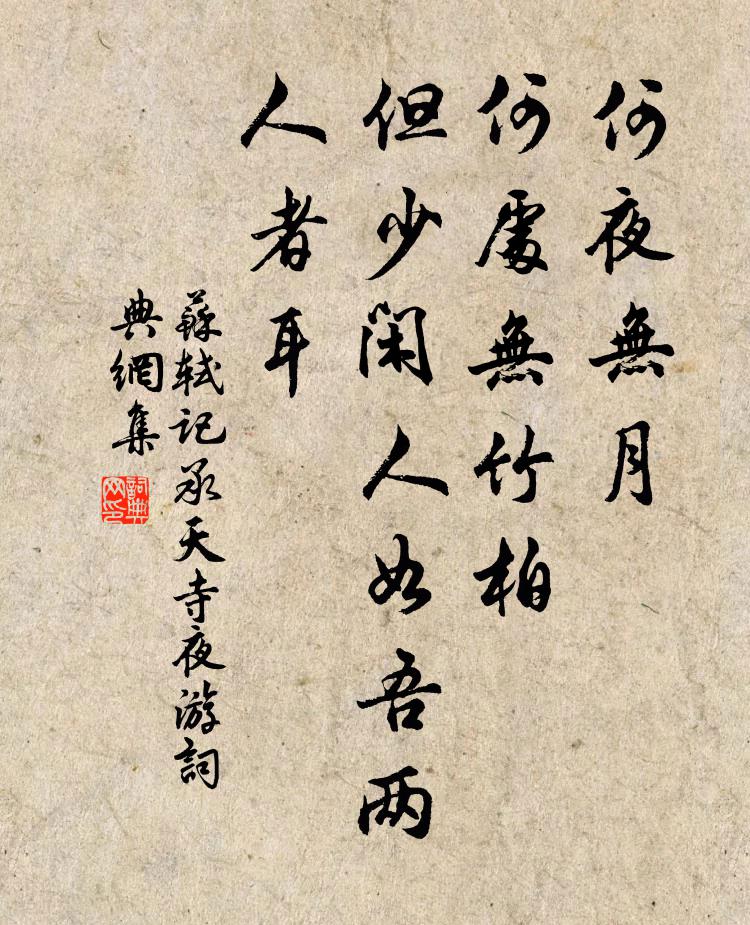 何夜無月
何處無竹柏
但少閑人如吾两
人者耳
蘇軾記承天寺夜游詞
典網集
詞典
网印